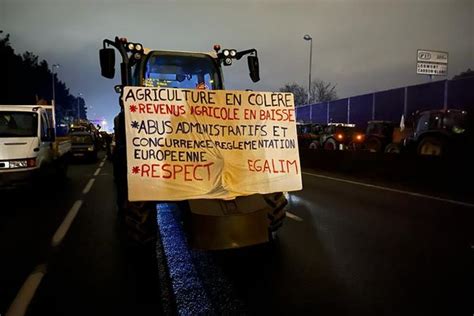 AGRICULTURE EN COLÈRE
*REVENUS AGRICOLE EN BAISSE
*ABUS ADMINISTRATIFS ET
CONCURRENCE REGLEMENTATION
EUROPÉENNE
*RESPECT EGALIM
LORMONT
CARBON-BLANC